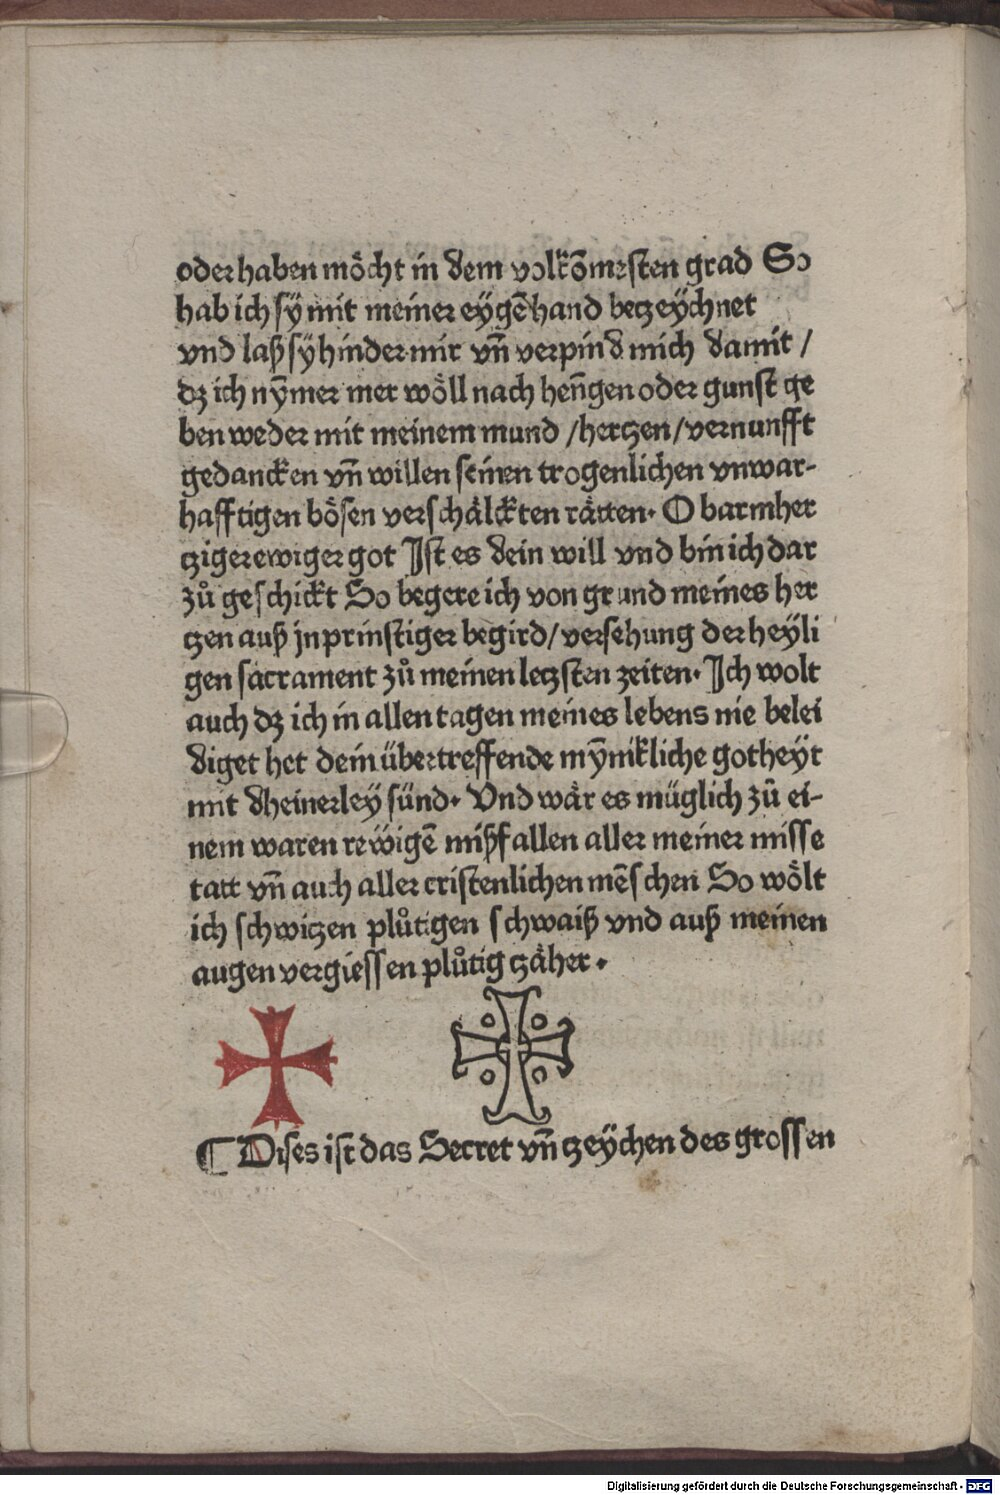 oder haben möcht in dem volkōmesten grad So
hab ich sÿ mit meiner eÿgē hand betzeÿchnet
vnd laß sÿ hinder mir vn̄ verpind mich damit /
dz ich nȳmer mer wöll nach hen̄gen oder gunst ge
ben weder mit meinem mund / hertzen / vernunfft
gedancken vn̄ willen seinen trogenlichen vnwar-
hafftigen bösen verschälckten rätten. O barmher
tziger ewiger got Ist es dein will vnd bin ich dar
zů geschickt So begere ich von grund meines her
tzen auß jnprinstiger begird / versehung der heÿli
gen sacrament zů meinen letzsten zeiten. Ich wolt
auch dz ich in allen tagen meines lebens nie belei
diget het dein übertreffende mȳnikliche gotheÿt
mit dheinerleÿ sünd. Vnd wär es müglich zů ei-
nem waren rewigē mißfallen aller meiner misse
tatt vn̄ auch aller cristenlichen mēschen So wölt
ich schwitzen plůtigen schwaiß vnd auß meinen
augen vergiessen plůtig tzäher.
¶ Dises ist das Secret vn̄ tzeÿchen des grossen
Digitalisierung gefördert durch die Deutsche Forschungsgemeinschaft - DFG